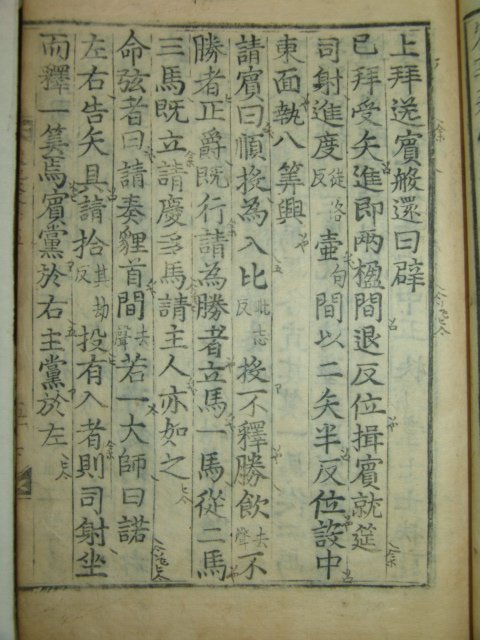 上拜送賓般還曰辟
已拜受矢進即兩楹間退反位揖賓就筵
司射進度徒洛反壺句間以二矢半反位設中
東面執八筭興
請賓曰順投為入比毗志反投不釋勝飲去聲不
勝者正爵既行請為勝者立馬一馬從二馬
三馬既立請慶多馬請主人亦如之
命弦者曰請奏貍首間去聲若一大師曰諾
左右告矢具請拾其劫反投有入者則司射坐
而釋一筭焉賓黨於右主黨於左